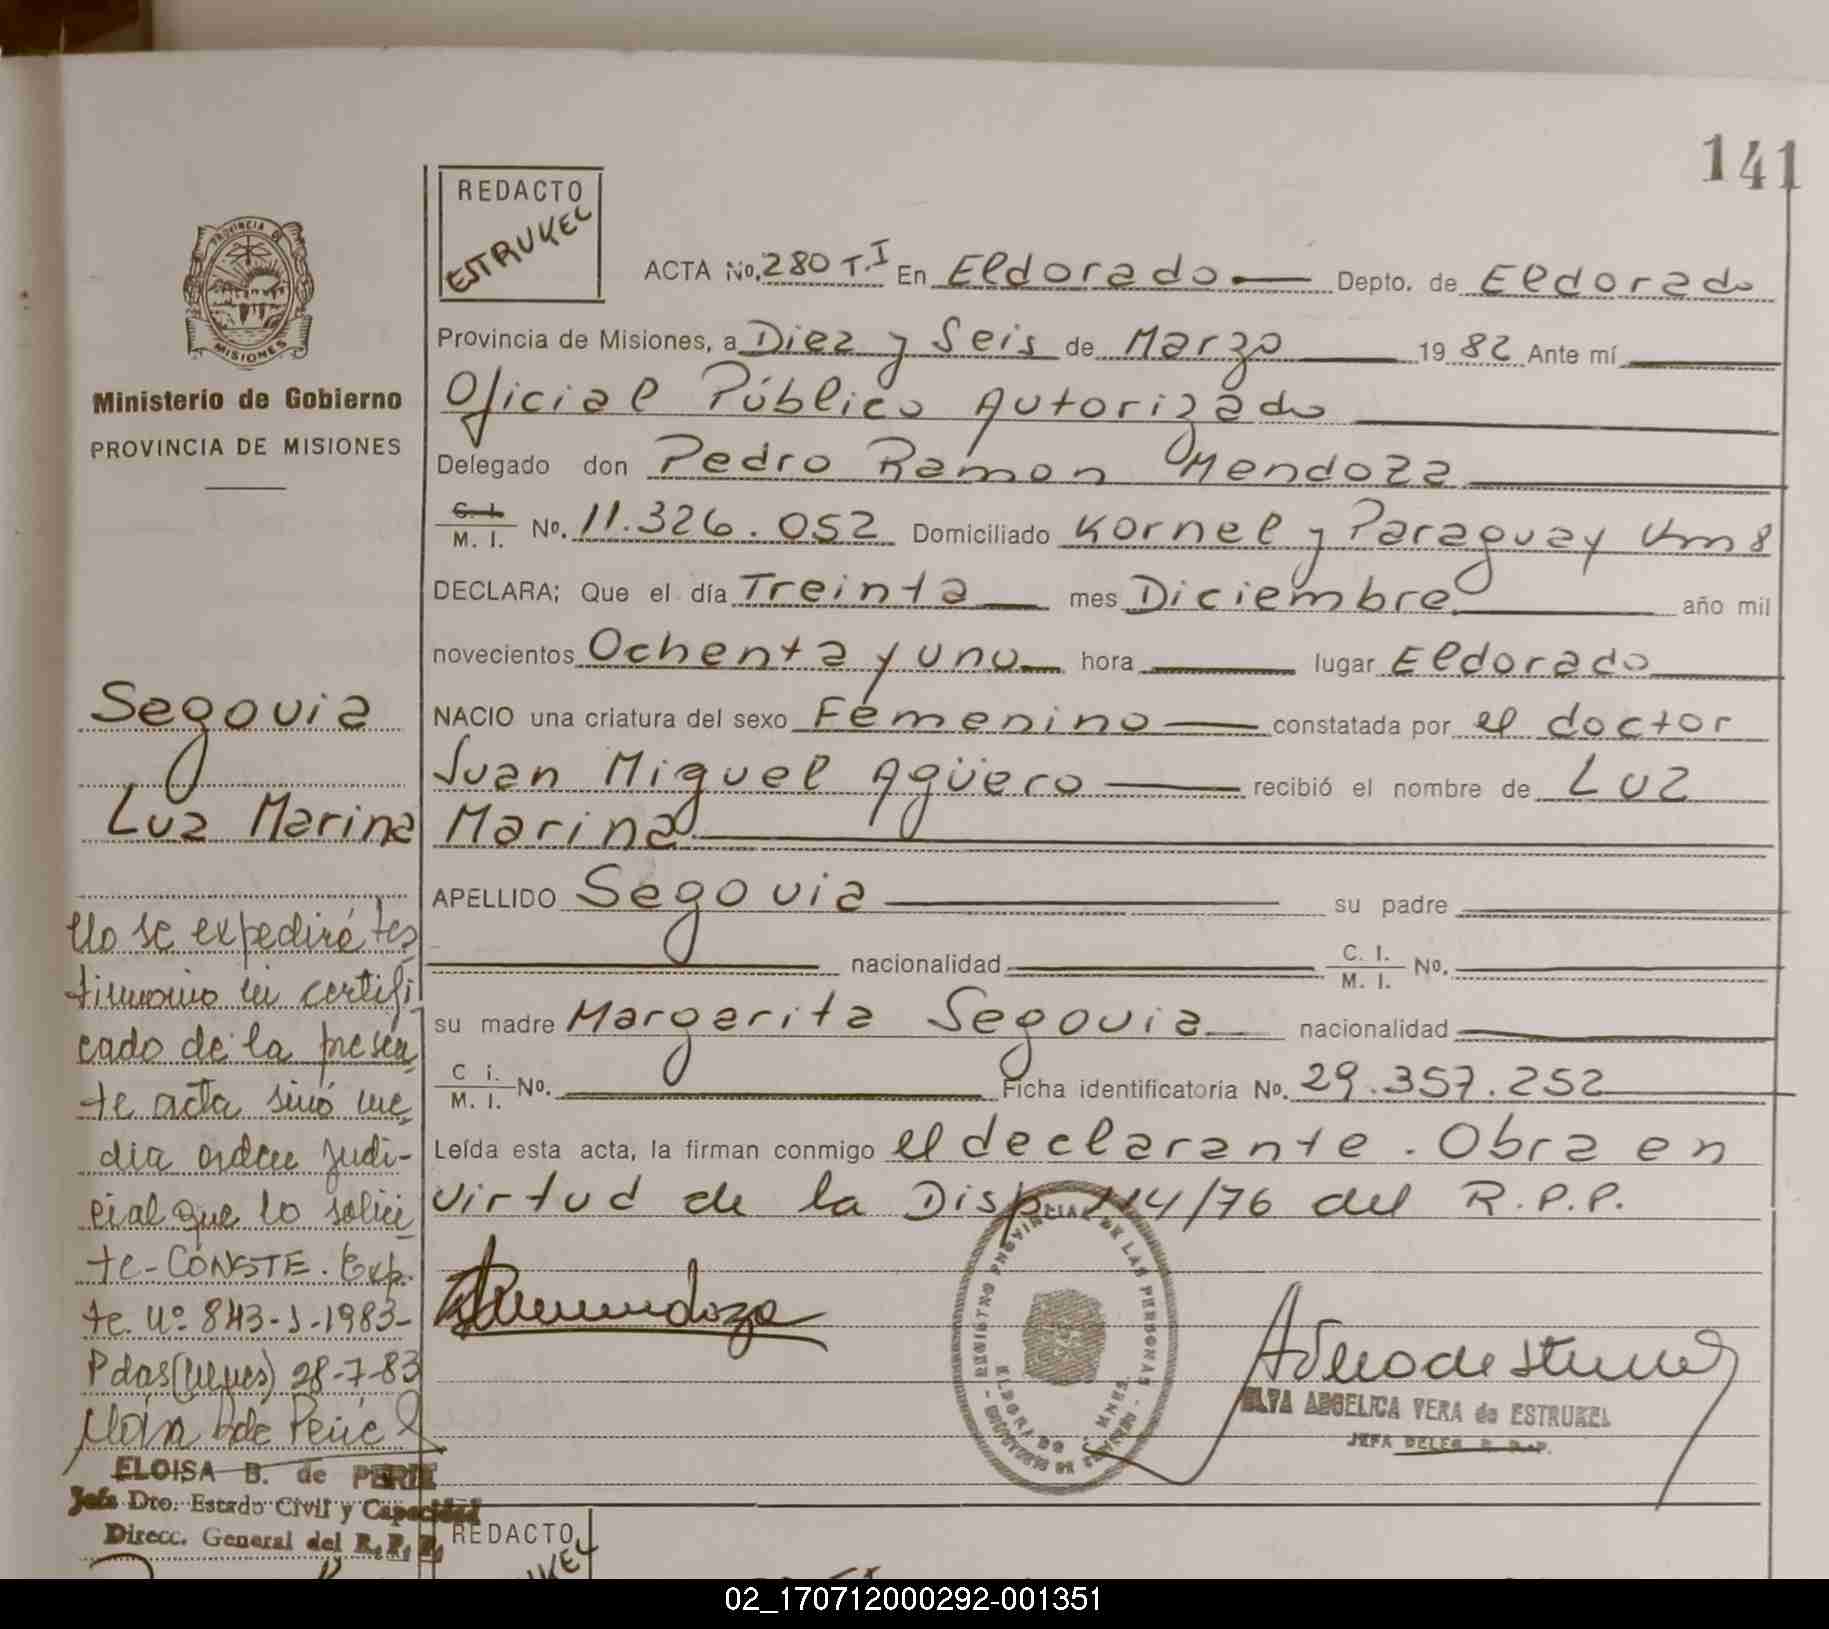 141
REDACTO
ESTRUKEL
PROVINCIA DE
MISIONES
Ministerio de Gobierno
PROVINCIA DE MISIONES
ACTA No. 280 T.I En Eldorado Depto. de Eldorado
Provincia de Misiones, a Diez y Seis de Marzo 19 82 Ante mí
Oficial Público Autorizado
Delegado don Pedro Ramon Mendoza
C. I.
M. I. No. 11.326.052 Domiciliado Kornel y Paraguay Km 8
DECLARA; Que el día Treinta mes Diciembre año mil
novecientos Ochenta y uno hora lugar Eldorado
NACIO una criatura del sexo Femenino constatada por el doctor
Juan Miguel Agüero recibió el nombre de Luz
Marina
APELLIDO Segovia su padre
nacionalidad C. I.
M. I. No.
su madre Margarita Segovia nacionalidad
C i.
M. I. No. Ficha identificatoria No. 29.357.252
Leída esta acta, la firman conmigo el declarante. Obra en
virtud de la Disp. 114/76 del R.P.P.
Segovia
Luz Marina
No se expedirá tes
timonio ni certifi
cado de la presen
te acta sinó me
dia orden judi-
cial que lo solici
te-CONSTE. Exp.
te. Nº 843-J-1983-
Pdas 28-7-83
ELOISA B. de PERIE
Jefa Dto. Estado Civil y Capacidad
Direcc. General del R. P. P.
REGISTRO PROVINCIAL DE LAS PERSONAS
ELDORADO MNES.
ELVA ANGELICA VERA de ESTRUKEL
JEFA DELEG. R. P. P.
REDACTO
02_170712000292-001351